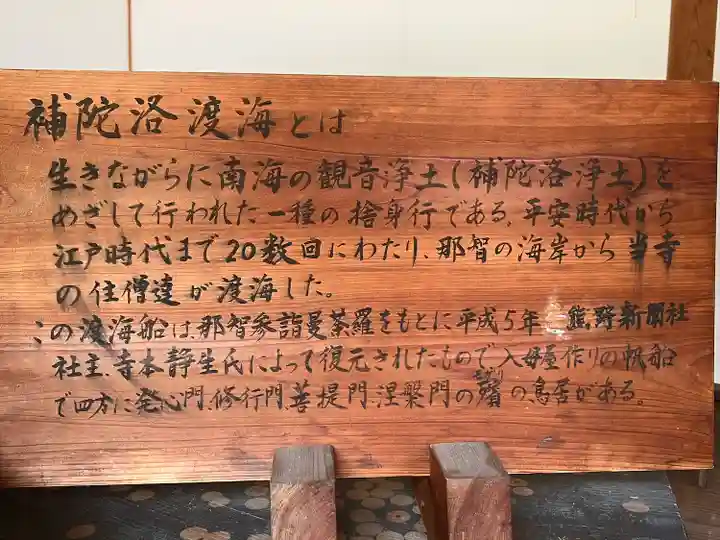 補陀洛渡海とは
生きながらに南海の観音浄土(補陀洛浄土)を
めざして行われた一種の捨身行である。平安時代から
江戸時代まで20数回にわたり、那智の海岸から当寺
の住僧達が渡海した。
この渡海船は、那智参詣曼荼羅をもとに平成5年 熊野新聞社
社主、寺本静生氏によって復元されたもので入母屋作りの帆船
で四方に発心門、修行門、菩提門、涅槃門の の鳥居がある。